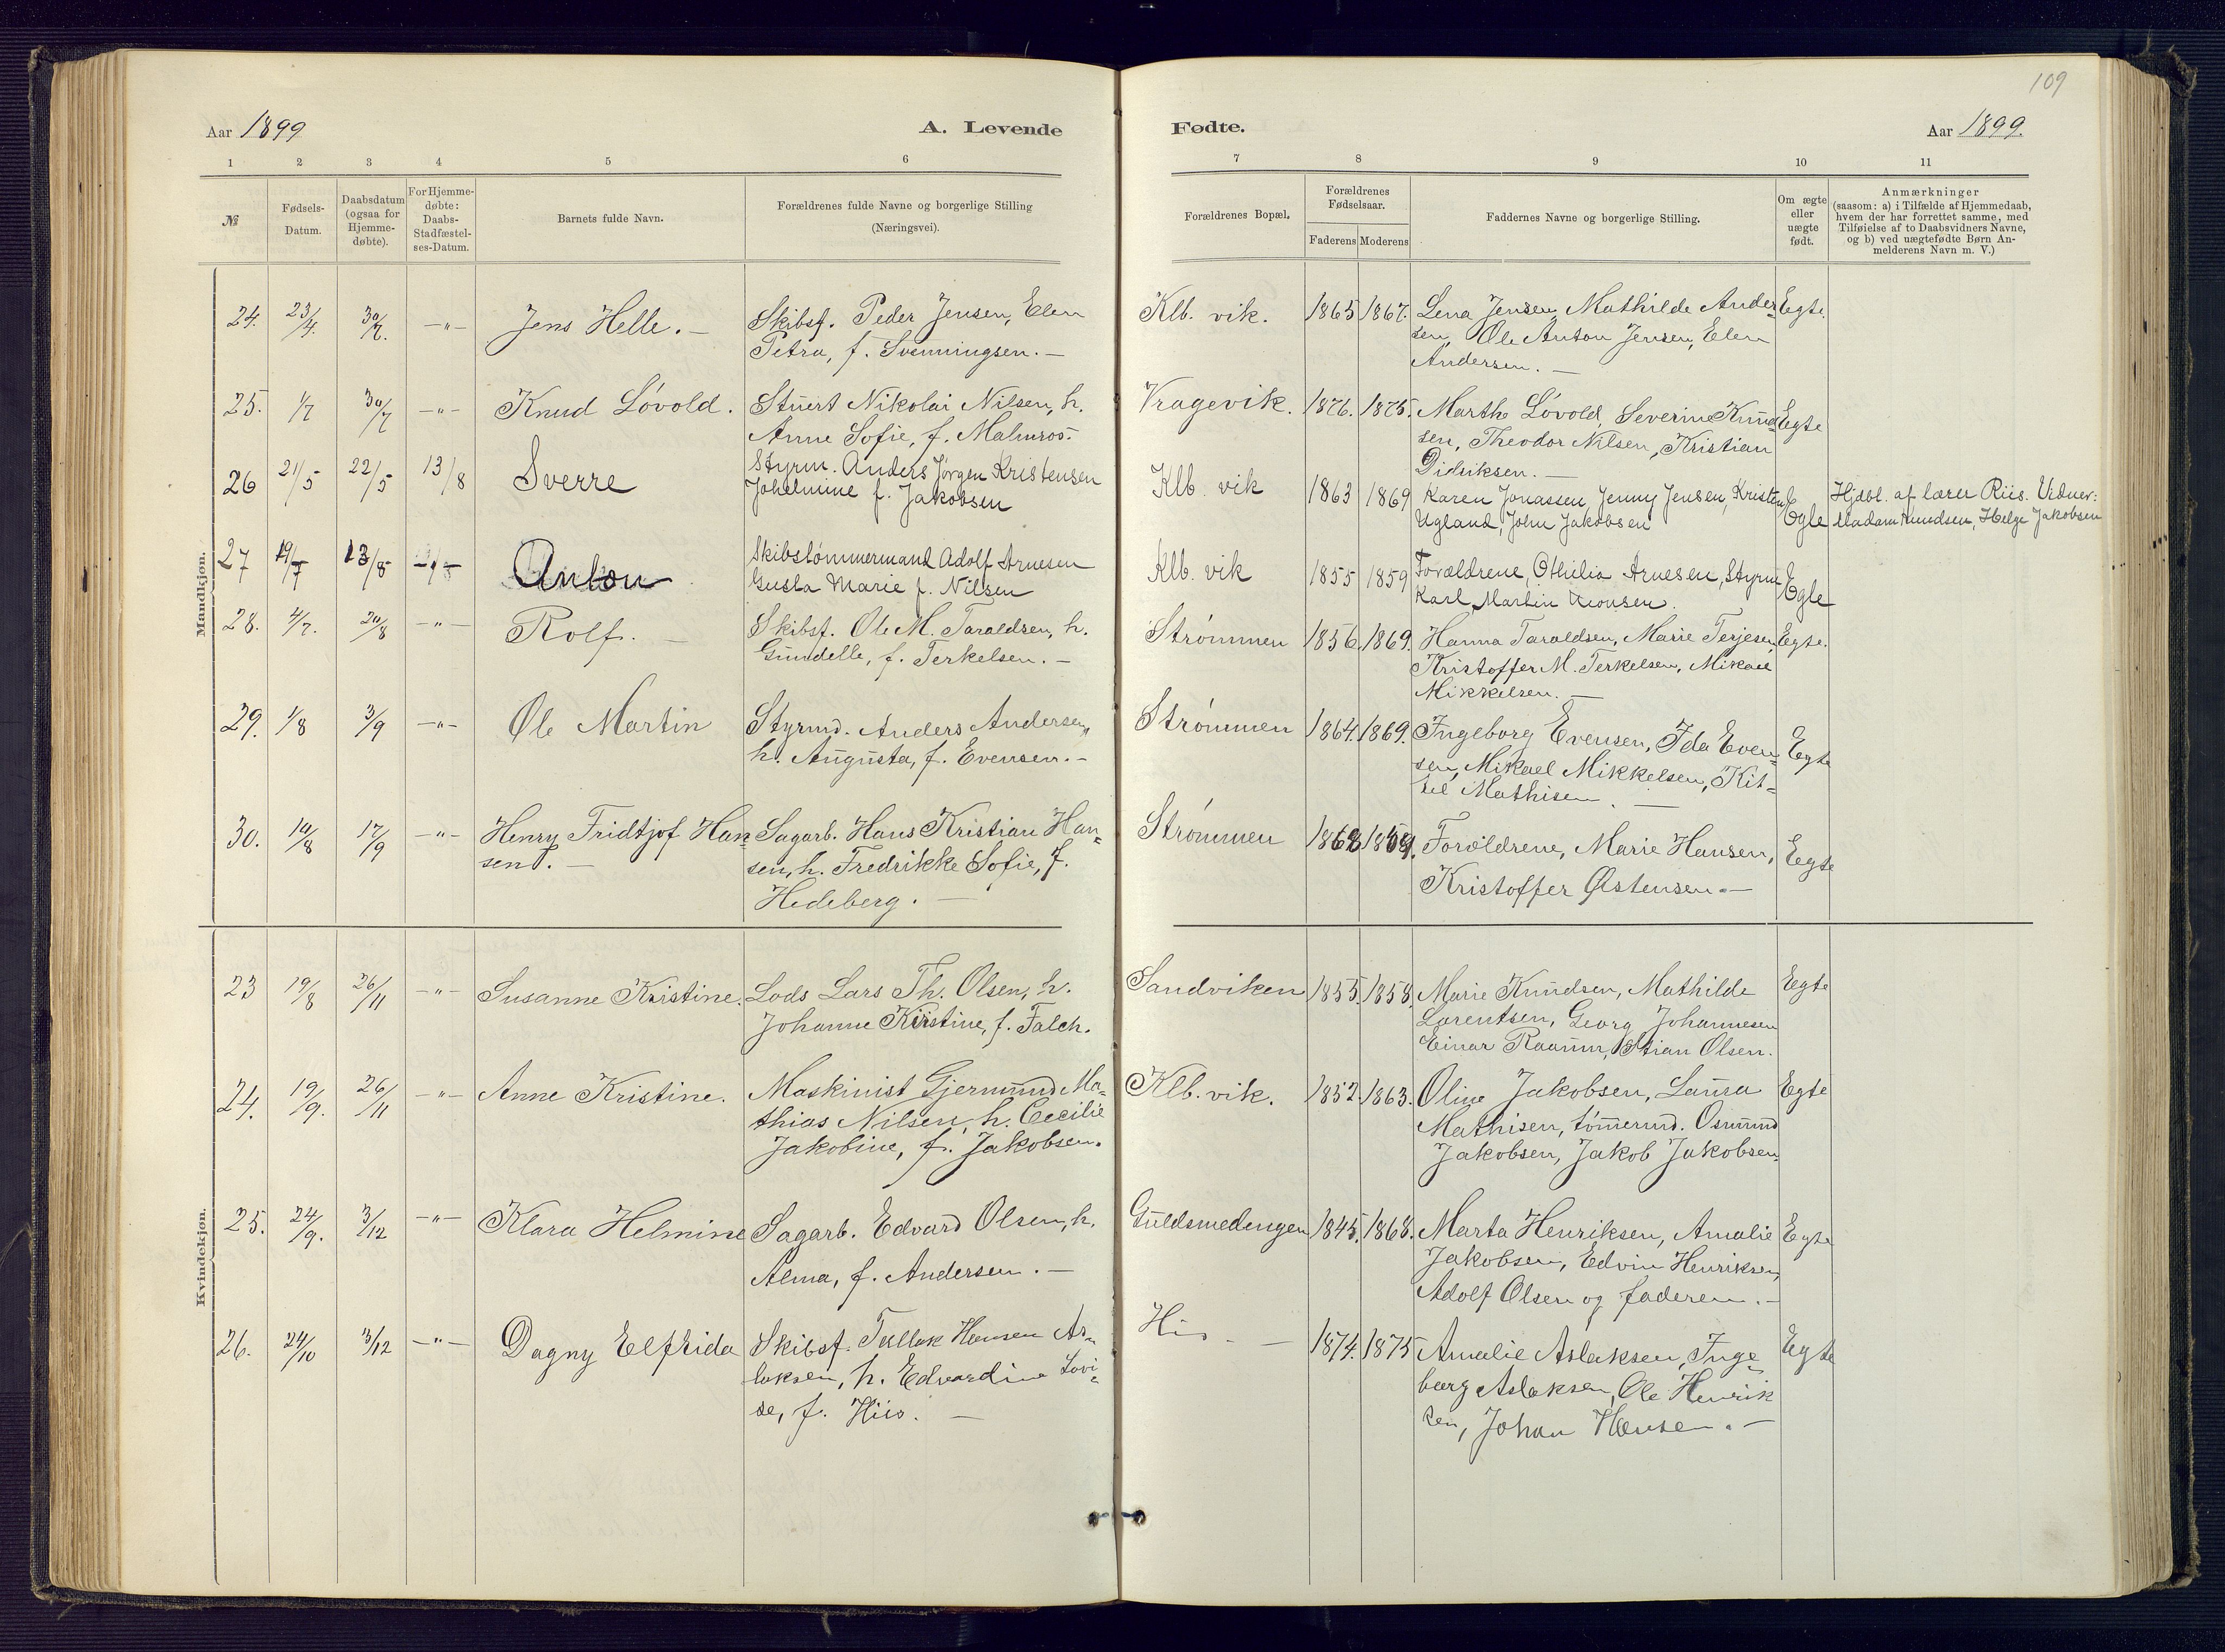 109
Aar 1899
A. Levende
Fødte.
Aar 1899.
1 2 3 4 5 6 7 8 9 10 11
№
Fødsels-
Datum.
Daabsdatum
(ogsaa for
Hjemme-
døbte).
For Hjemme-
døbte:
Daabs-
Stadfæstel-
ses-Datum.
Barnets fulde Navn.
Forældrenes fulde Navne og borgerlige Stilling
(Næringsvei).
Forældrenes Bopæl.
Forældrenes
Fødselsaar.
Faderens Moderens
Faddernes Navne og borgerlige Stilling.
Om ægte
eller
uægte
født.
Anmærkninger
(saasom: a) i Tilfælde af Hjemmedaab,
hvem der har forrettet samme, med
Tilføielse af to Daabsvidners Navne,
og b) ved uægtefødte Børn An-
melderens Navn m. V.)
Mandkjøn.
24. 23/4. 30/7. —"— Jens Helle. —
Skibsf. Peder Jensen, Elen
Petra, f. Svenningsen. —
Klb. vik. 1865 1867.
Lena Jensen, Mathilde Ander-
sen, Ole Anton Jensen, Elen
Andersen. —
Egte.
25. 1/7 30/7 —"— Knud Lóvold.
Stuert Nikolai Nilsen, h.
Anne Sofie, f. Malmros.
Vragevik. 1876. 1875.
Marthe Lóvold, Severine Knud-
sen, Theodor Nilsen, Kristian
Didriksen. —
Egte
26 21/5 22/5 13/8 Sverre
Styrm. Anders Jørgen Kristensen
Johelmine f. Jakobsen
Klb. vik 1863 1869
Karen Jonassen, Jenny Jensen, Kristen
Ugland, John Jakobsen
Egte
Hjdbt. af lærer Riis. Vidner:
Madam Knudsen, Helge Jakobsen
27 19/7 13/8 Anton
Skibstómmermand Adolf Arnesen
Gusta Marie f. Nilsen
Klb. vik 1855 1859
Forældrene, Othilia Arnesen, Styrm
Karl Martin
Egte
28. 4/7. 20/8 —"— Rolf. —
Skibsf. Ole M. Taraldsen, h.
Gundelle, f. Terkelsen. —
Strómmen 1856. 1869.
Hanna Taraldsen, Marie Terjesen,
Kristoffer M. Terkelsen, Mikael
Mikkelsen. —
Egte.
29. 1/8 3/9 —"— Ole Martin
Styrmd. Anders Andersen,
h. Augusta, f. Evensen. —
Strómmen 1864. 1869.
Ingeborg Evensen, Ida Even-
sen, Mikael Mikkelsen, Kit-
til Mathisen. —
Egte
30. 10/8 17/9 —"— Henry Fridtjof Han-
sen. —
Sagarb. Hans Kristian Han-
sen, h. Fredrikke Sofie, f.
Hedeberg. —
Strómmen
Forældrene, Marie Hansen,
Kristoffer Østensen. —
Egte
Kvindekjøn.
23 19/8 26/11 —"— Susanne Kristine.
Lods Lars Th. Olsen, h.
Johanne Kirstine, f. Falch.
Sandviken 1855. 1858.
Marie Knudsen, Mathilde
Lorentsen, Georg Johannesen
Einar Raanum, Stian Olsen.
Egte
24. 19/9. 26/11 —"— Anne Kristine.
Maskinist Gjermund Ma-
thias Nilsen, h. Cecilie
Jakobine, f. Jakobsen.
Klb. vik. 1852. 1863.
Oline Jakobsen, Laura
Mathisen, tómermd. Osmund
Jakobsen, Jakob Jakobsen.
Egte
25. 24/9. 3/12 —"— Klara Helmine
Sagarb. Edvard Olsen, h.
Alma, f. Andersen. —
Guldsmedengen 1845. 1868.
Marta Henriksen, Amalie
Jakobsen, Edvin Henriksen,
Adolf Olsen og faderen. —
Egte
26. 24/10 3/12 —"— Dagny Elfrida
Skibsf. Tallak Hansen As-
laksen, h. Edvardine Lovi-
se, f. Hiis. —
His — 1874. 1875
Amalie Aslaksen, Inge-
borg Aslaksen, Ole Henrik
sen, Johan Hansen. —
Egte